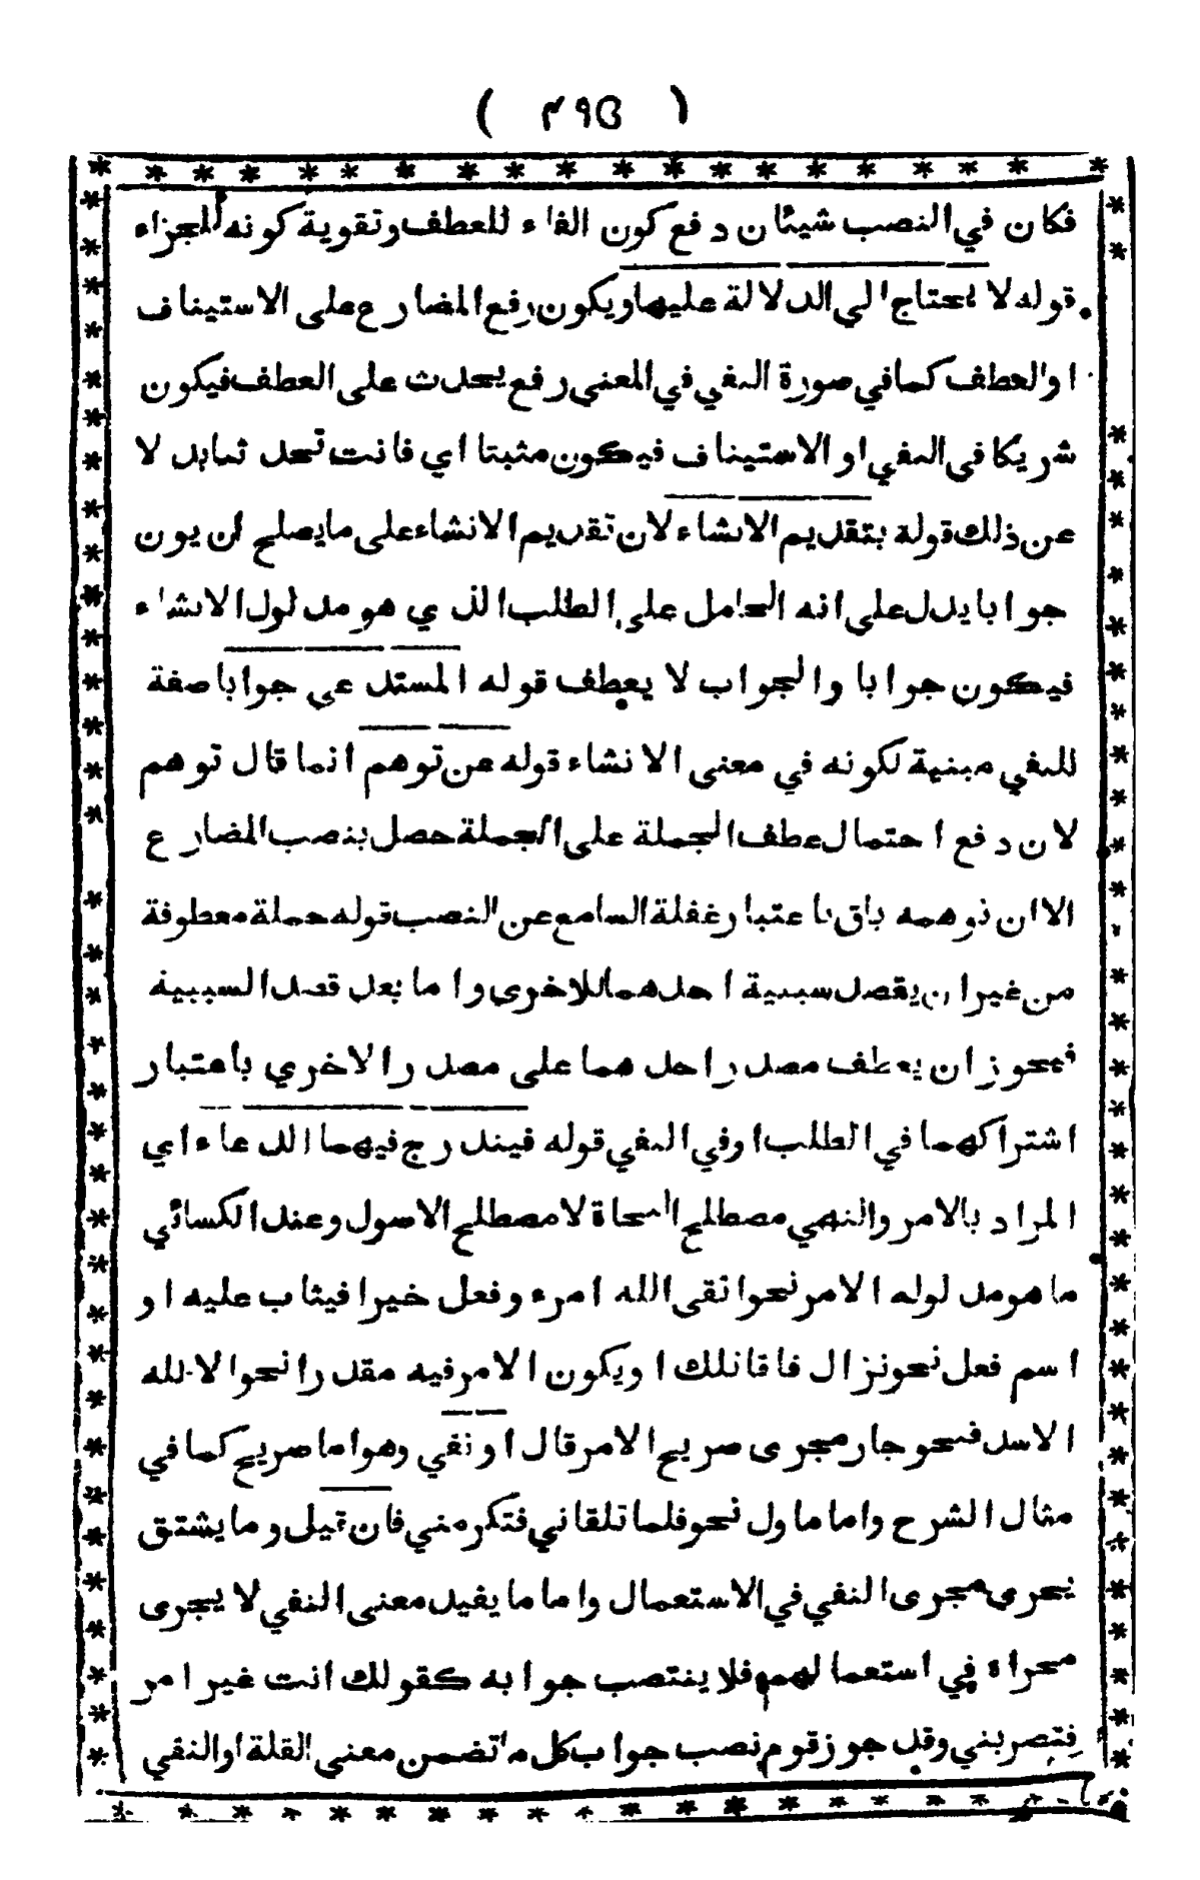 ( ٤٩٥ )
فكان في النصب شيئان دفع كون الفاء للعطف وتقوية كونه للجزاء
قوله لا يحتاج الي الدلالة عليها ويكون رفع المضارع على الاستيناف
او العطف كما في صورة النفي في المعنى رفع يحدث على العطف فيكون
شريكا في النفي او الاستيناف فيكون مثبتا اي فانت تحد ثنا بدلا
عن ذلك قوله بتقديم الانشاء لان تقديم الانشاء على ما يصلح ان يون
جوابا يدل على انه الحامل على الطلب الذي هو مدلول الانشاء
فيكون جوابا والجواب لا يعطف قوله المستدعي جوابا صفة
للنفي مبنية لكونه في معنى الانشاء قوله عن توهم انما قال توهم
لان دفع احتمال عطف الجملة على الجملة حصل بنصب المضارع
الا ان توهمه باق باعتبار غفلة السامع عن النصب قوله جملة معطوفة
من غير ان يقصد سببية احدهما للاخرى واما بعد قصد السببية
فيجوز ان يعطف مصدر احدهما على مصدر الاخري باعتبار
اشتراكهما في الطلب او في النفي قوله فيندرج فيهما الدعاء اي
المراد بالامر والنهي مصطلح النحاة لا مصطلح الاصول وعند الكسائي
ما هو مدلوله الامر نحو اتقى الله امرء وفعل خيرا فيثاب عليه او
اسم فعل نحو نزال فاقاتلك او يكون الامر فيه مقدرا نحو الا لله
الاسد فنحو جار مجرى صريح الامر قال او نفي وهو اما صريح كما في
مثال الشرح واما ماول نحو قلما تلقاني فتكرمني فان قيل وما يشتق
يجرى مجرى النفي في الاستعمال واما ما يفيد معنى النفي لا يجرى
مجراه في استعمالهم فلا ينتصب جوابه كقولك انت غير امر
فتضربني وقد جوز قوم نصب جواب كل ما تضمن معنى القلة او النفي